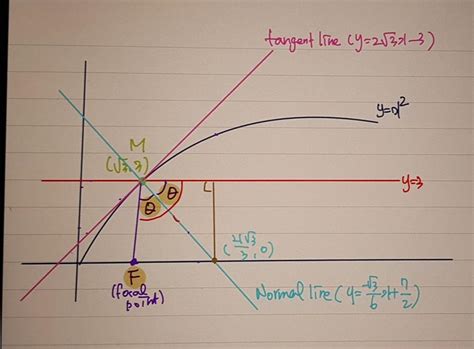 tangent line (y=2√3x-3)
y=x²
M
(√3,3)
θ
y=3
θ
(21√3/3, 0)
F
(focal
point)
Normal line (y=-√3/6x+7/2)